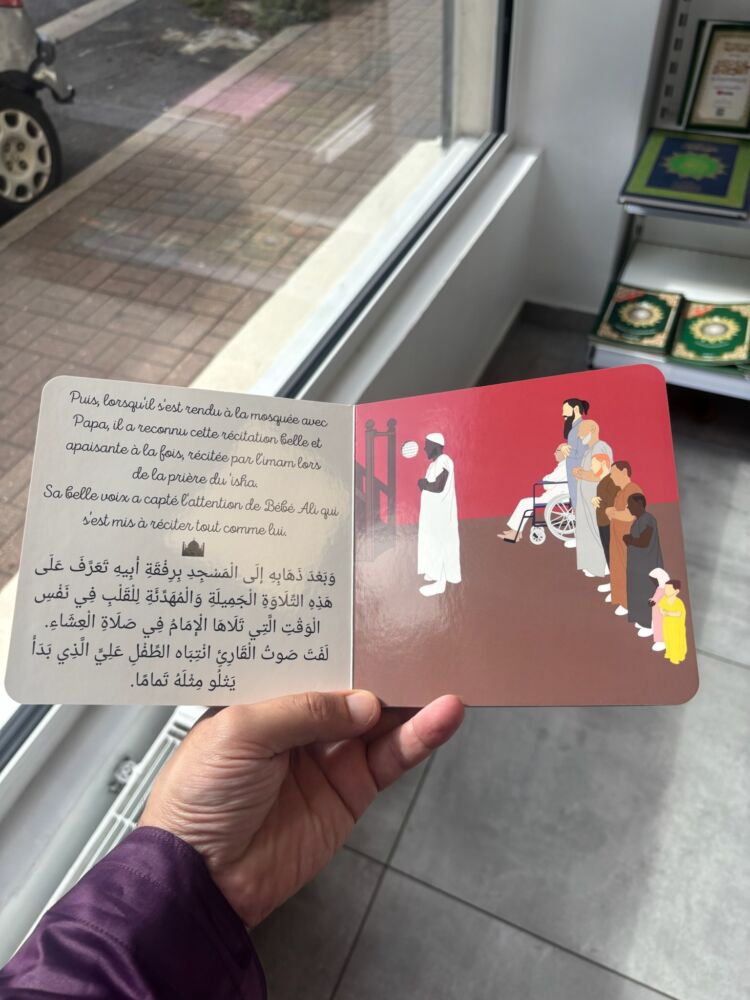 Puis, lorsqu'il s'est rendu à la mosquée avec
Papa, il a reconnu cette récitation belle et
apaisante à la fois, récitée par l'imam lors
de la prière du 'isha.
Sa belle voix a capté l'attention de Bébé Ali qui
s'est mis à réciter tout comme lui.
وَبَعْدَ ذَهَابِهِ إِلَى الْمَسْجِدِ بِرِفْقَةِ أَبِيهِ تَعَرَّفَ عَلَى
هَذِهِ التِّلَاوَةِ الْجَمِيلَةِ وَالْمُهَدِّئَةِ لِلْقَلْبِ فِي نَفْسِ
الْوَقْتِ الَّتِي تَلَاهَا الْإِمَامُ فِي صَلَاةِ الْعِشَاءِ.
لَفَتَ صَوتُ الْقَارِئِ انْتِبَاه الطِّفْلِ عَلِيِّ الَّذِي بَدَأَ
يَتْلُو مِثْلَهُ تَمامًا.